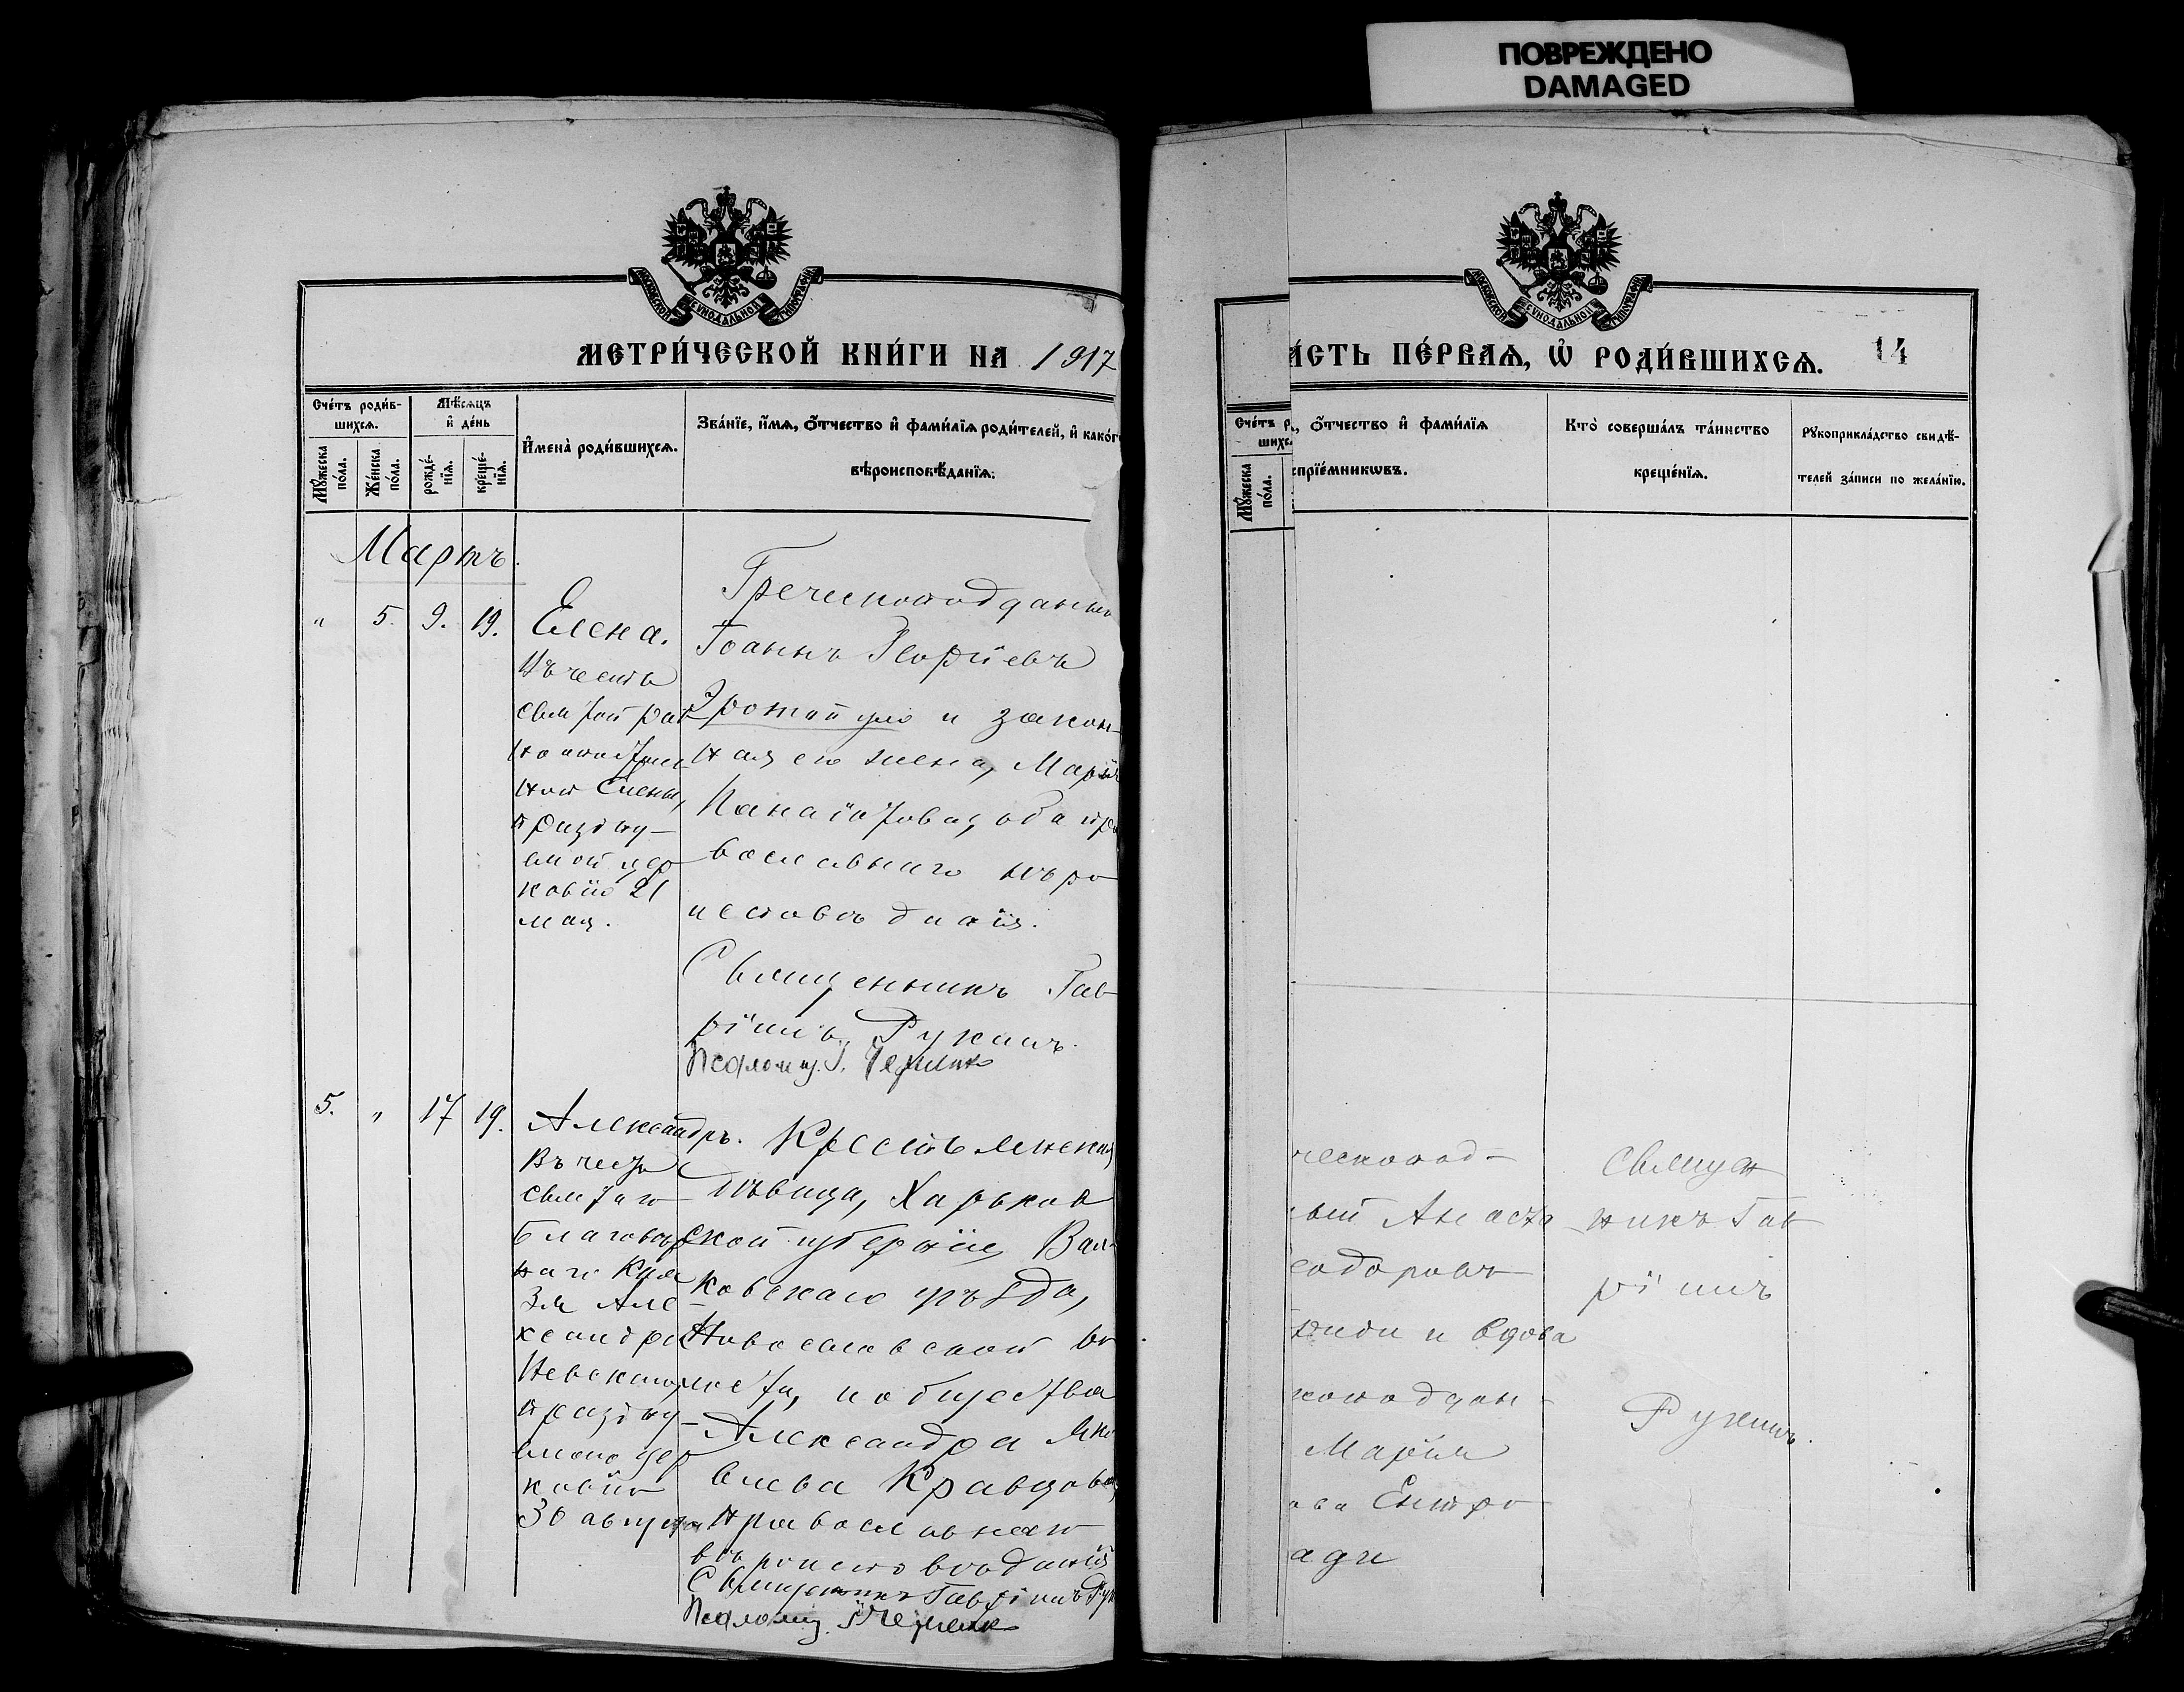 ПОВРЕЖДЕНО
DAMAGED
МОСКОВСКОЙ СѴНОДАЛЬНОЙ ТИПОГРАФІИ
МЕТРИ́ЧЕСКОЙ КНИ́ГИ НА 1917
Сче́тъ роди́в-
шихсѧ.
Мꙋ́жеска
по́ла.
Же́нска
по́ла.
Мѣ́сѧцъ
и҆ де́нь
рожде́-
нїѧ.
креще́-
нїѧ.
И҆мена̀ роди́вшихсѧ.
Зва́нїе, и҆́мѧ, ѻ҆́тчество и҆ фами́лїѧ роди́телей, и҆ како́г
вѣроисповѣ́данїѧ.
Мартъ.
" 5. 9. 19.
Елена.
Въ честь
святой рав
ноапостоль
ной Елены,
праздну-
емой цер
ковію 21
мая.
Греческоподданный
Іоаннъ Георгіевъ
и закон-
ная его жена, Марія
Панаіотова, оба пра
вославнаго въро
исповѣданія.
Священникъ Гав-
ріилъ Рукинъ.
Псаломщ. І.
5. " 17 19.
Александръ.
Въ честь
святаго
благовѣр
наго Кня
зя Але-
ксандра
Невскаго,
праздну-
емаго цер
ковію
30 августа
Крестьянская
дѣвица, Харьков
ской губерніи, Вал-
ковскаго уѣзда,
во
лости, и общества
Александра Яко
влева Кравцова,
православнаго
вѣроисповѣданія
Священникъ Гавріилъ Рук
Псаломщ. І.
МОСКОВСКОЙ СѴНОДАЛЬНОЙ ТИПОГРАФІИ
А́СТЬ ПЕ́РВАѦ, Ѡ҆ РОДИ́ВШИХСѦ. 14
Сче́тъ р
шихс
Мꙋ́жеска
по́ла.
, ѻ҆́тчество и҆ фами́лїѧ
спрїе́мникѡвъ.
Кто̀ соверша́лъ та́инство
креще́нїѧ.
Рꙋкоприкла́дство свидѣ́-
телей за́писи по жела́нїю.
ческопод-
ный Анаста
еодоровъ
и вдова
коподдан-
Марія
ова
ади
Священ
никъ Гав
ріилъ
Рукинъ.